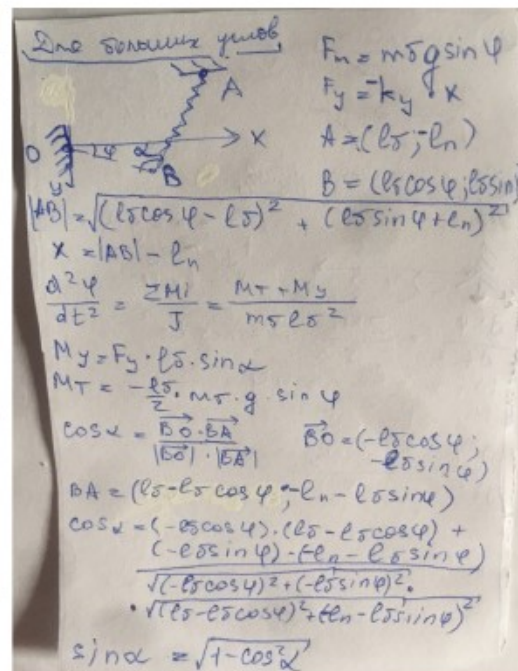 Для больших углов
Fт = mб g sin φ
Fy = -ky · x
A = (lб; -lп)
B = (lб cos φ; lб sin
A
O
φ
α
X
B
y
|AB| = √(lб cos φ - lб)² + (lб sin φ + lп)²
x = |AB| - lп
d²φ/dt² = ΣMi/J = (Mт + My)/(mб lб²)
My = Fy · lб · sin α
Mт = -lб/2 · mб · g · sin φ
cos α = (BO · BA)/(|BO| · |BA|)
BO = (-lб cos φ;
-lб sin φ)
BA = (lб - lб cos φ; -lп - lб sin φ)
cos α = (-lб cos φ) · (lб - lб cos φ) +
(-lб sin φ) · (-lп - lб sin φ)
√(-lб cos φ)² + (-lб sin φ)² ·
· √(lб - lб cos φ)² + (-lп - lб sin φ)²
sin α = √1 - cos² α